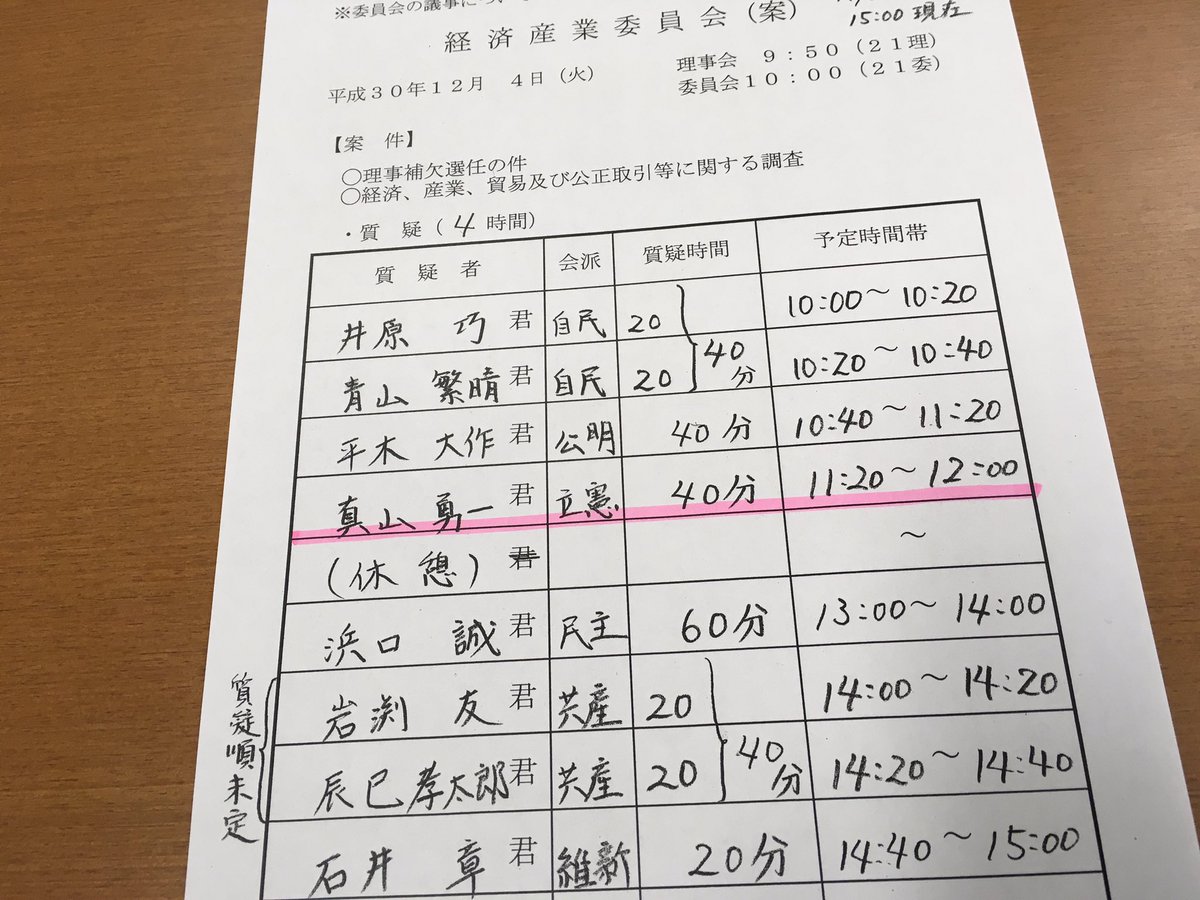 ※委員会の議事に
15:00 現在
経済産業委員会（案）
平成30年12月 4日（火）
理事会 9:50（21理）
委員会10:00（21委）
【案 件】
○理事補欠選任の件
○経済、産業、貿易及び公正取引等に関する調査
・質 疑（4時間）
質疑者 会派 質疑時間 予定時間帯
井原 巧君 自民 20 10:00～10:20
40分
青山 繁晴君 自民 20 10:20～10:40
平木 大作君 公明 40分 10:40～11:20
真山 勇一君 立憲 40分 11:20～12:00
（休憩）君 ～
浜口 誠君 民主 60分 13:00～14:00
質疑順未定
岩渕 友君 共産 20 14:00～14:20
40分
辰巳 孝太郎君 共産 20 14:20～14:40
石井 章君 維新 20分 14:40～15:00